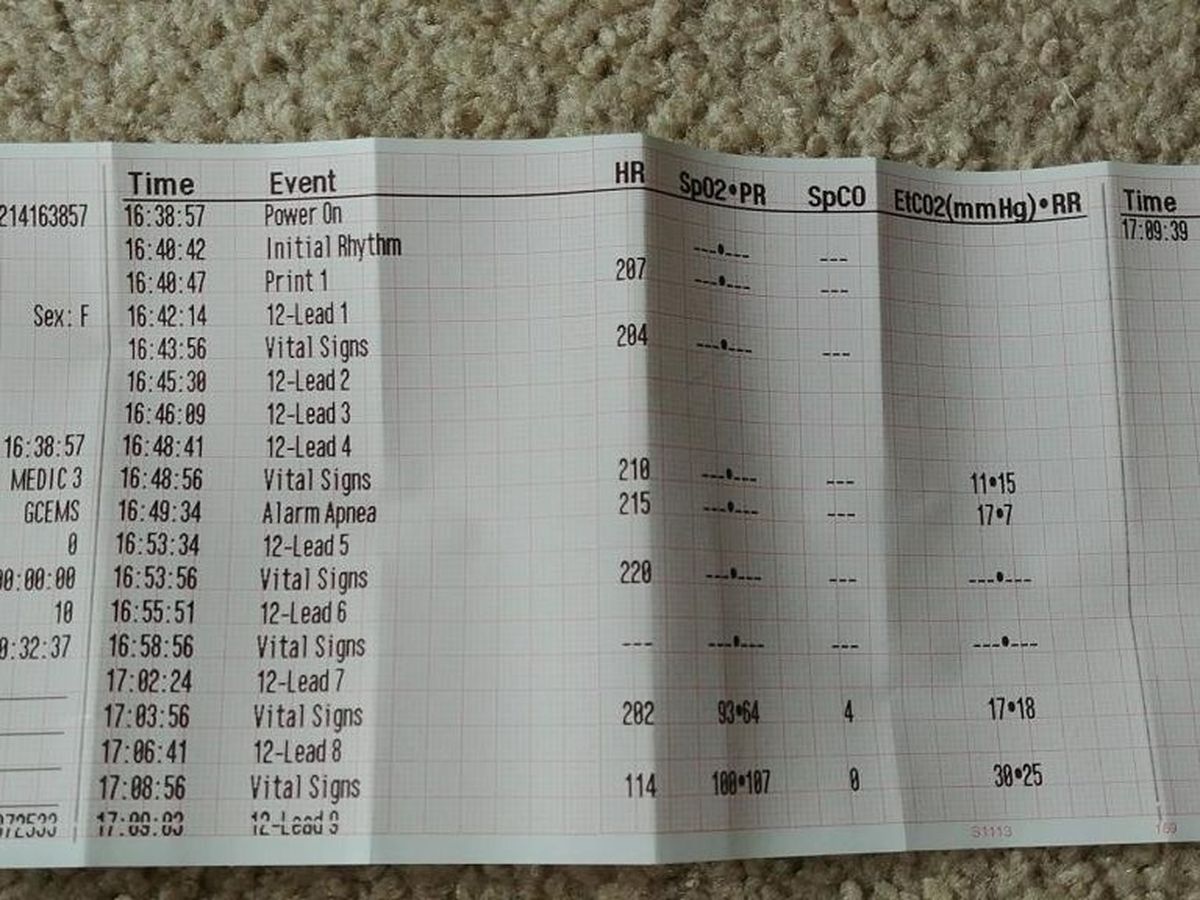 Time Event HR SpO2•PR SpCO EtCO2(mmHg)•RR Time
214163857 16:38:57 Power On 17:09:39
16:40:42 Initial Rhythm ---•--- ---
16:40:47 Print 1 207 ---•--- ---
Sex: F 16:42:14 12-Lead 1
16:43:56 Vital Signs 204 ---•--- ---
16:45:30 12-Lead 2
16:46:09 12-Lead 3
16:38:57 16:48:41 12-Lead 4
MEDIC 3 16:48:56 Vital Signs 210 ---•--- --- 11•15
GCEMS 16:49:34 Alarm Apnea 215 ---•--- --- 17•7
0 16:53:34 12-Lead 5
00:00:00 16:53:56 Vital Signs 220 ---•--- --- ---•---
10 16:55:51 12-Lead 6
0:32:37 16:58:56 Vital Signs --- ---•--- --- ---•---
17:02:24 12-Lead 7
17:03:56 Vital Signs 202 93•64 4 17•18
17:06:41 12-Lead 8
17:08:56 Vital Signs 114 100•107 0 30•25
17:09:03 12-Lead 9
S1113